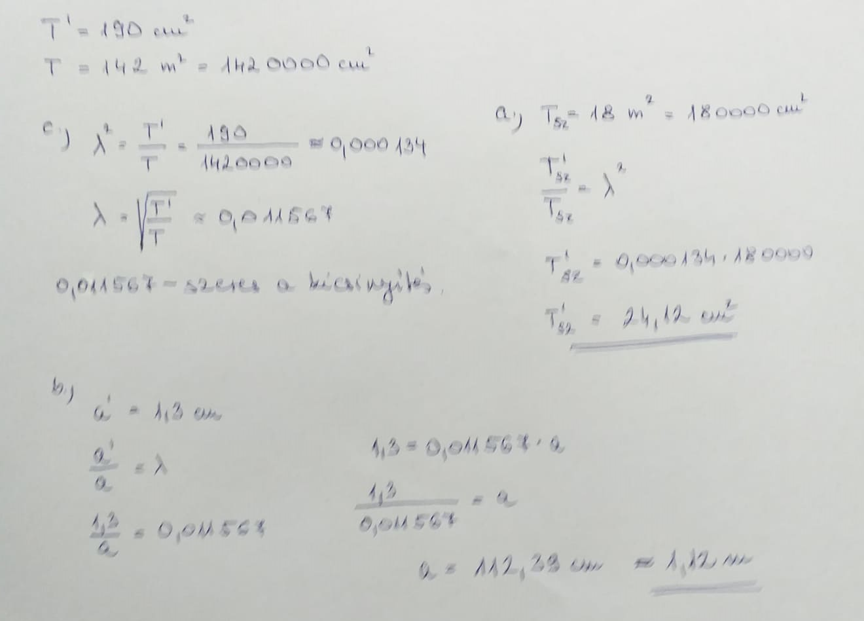 T' = 190 cm²
T = 142 m² = 1420000 cm²
c.) λ² = T'/T = 190/1420000 ≈ 0,000134
λ = √(T'/T) = 0,011567
0,011567 - szeres a kicsinyítés.
a.) Tsz = 18 m² = 180000 cm²
T'sz/Tsz = λ²
T'sz = 0,000134 · 180000
T'sz = 24,12 cm²
b.)
a' = 1,3 cm
a'/a = λ
1,3/a = 0,011567
1,3 = 0,011567 · a
1,3/0,011567 = a
a = 112,39 cm ≈ 1,12 m